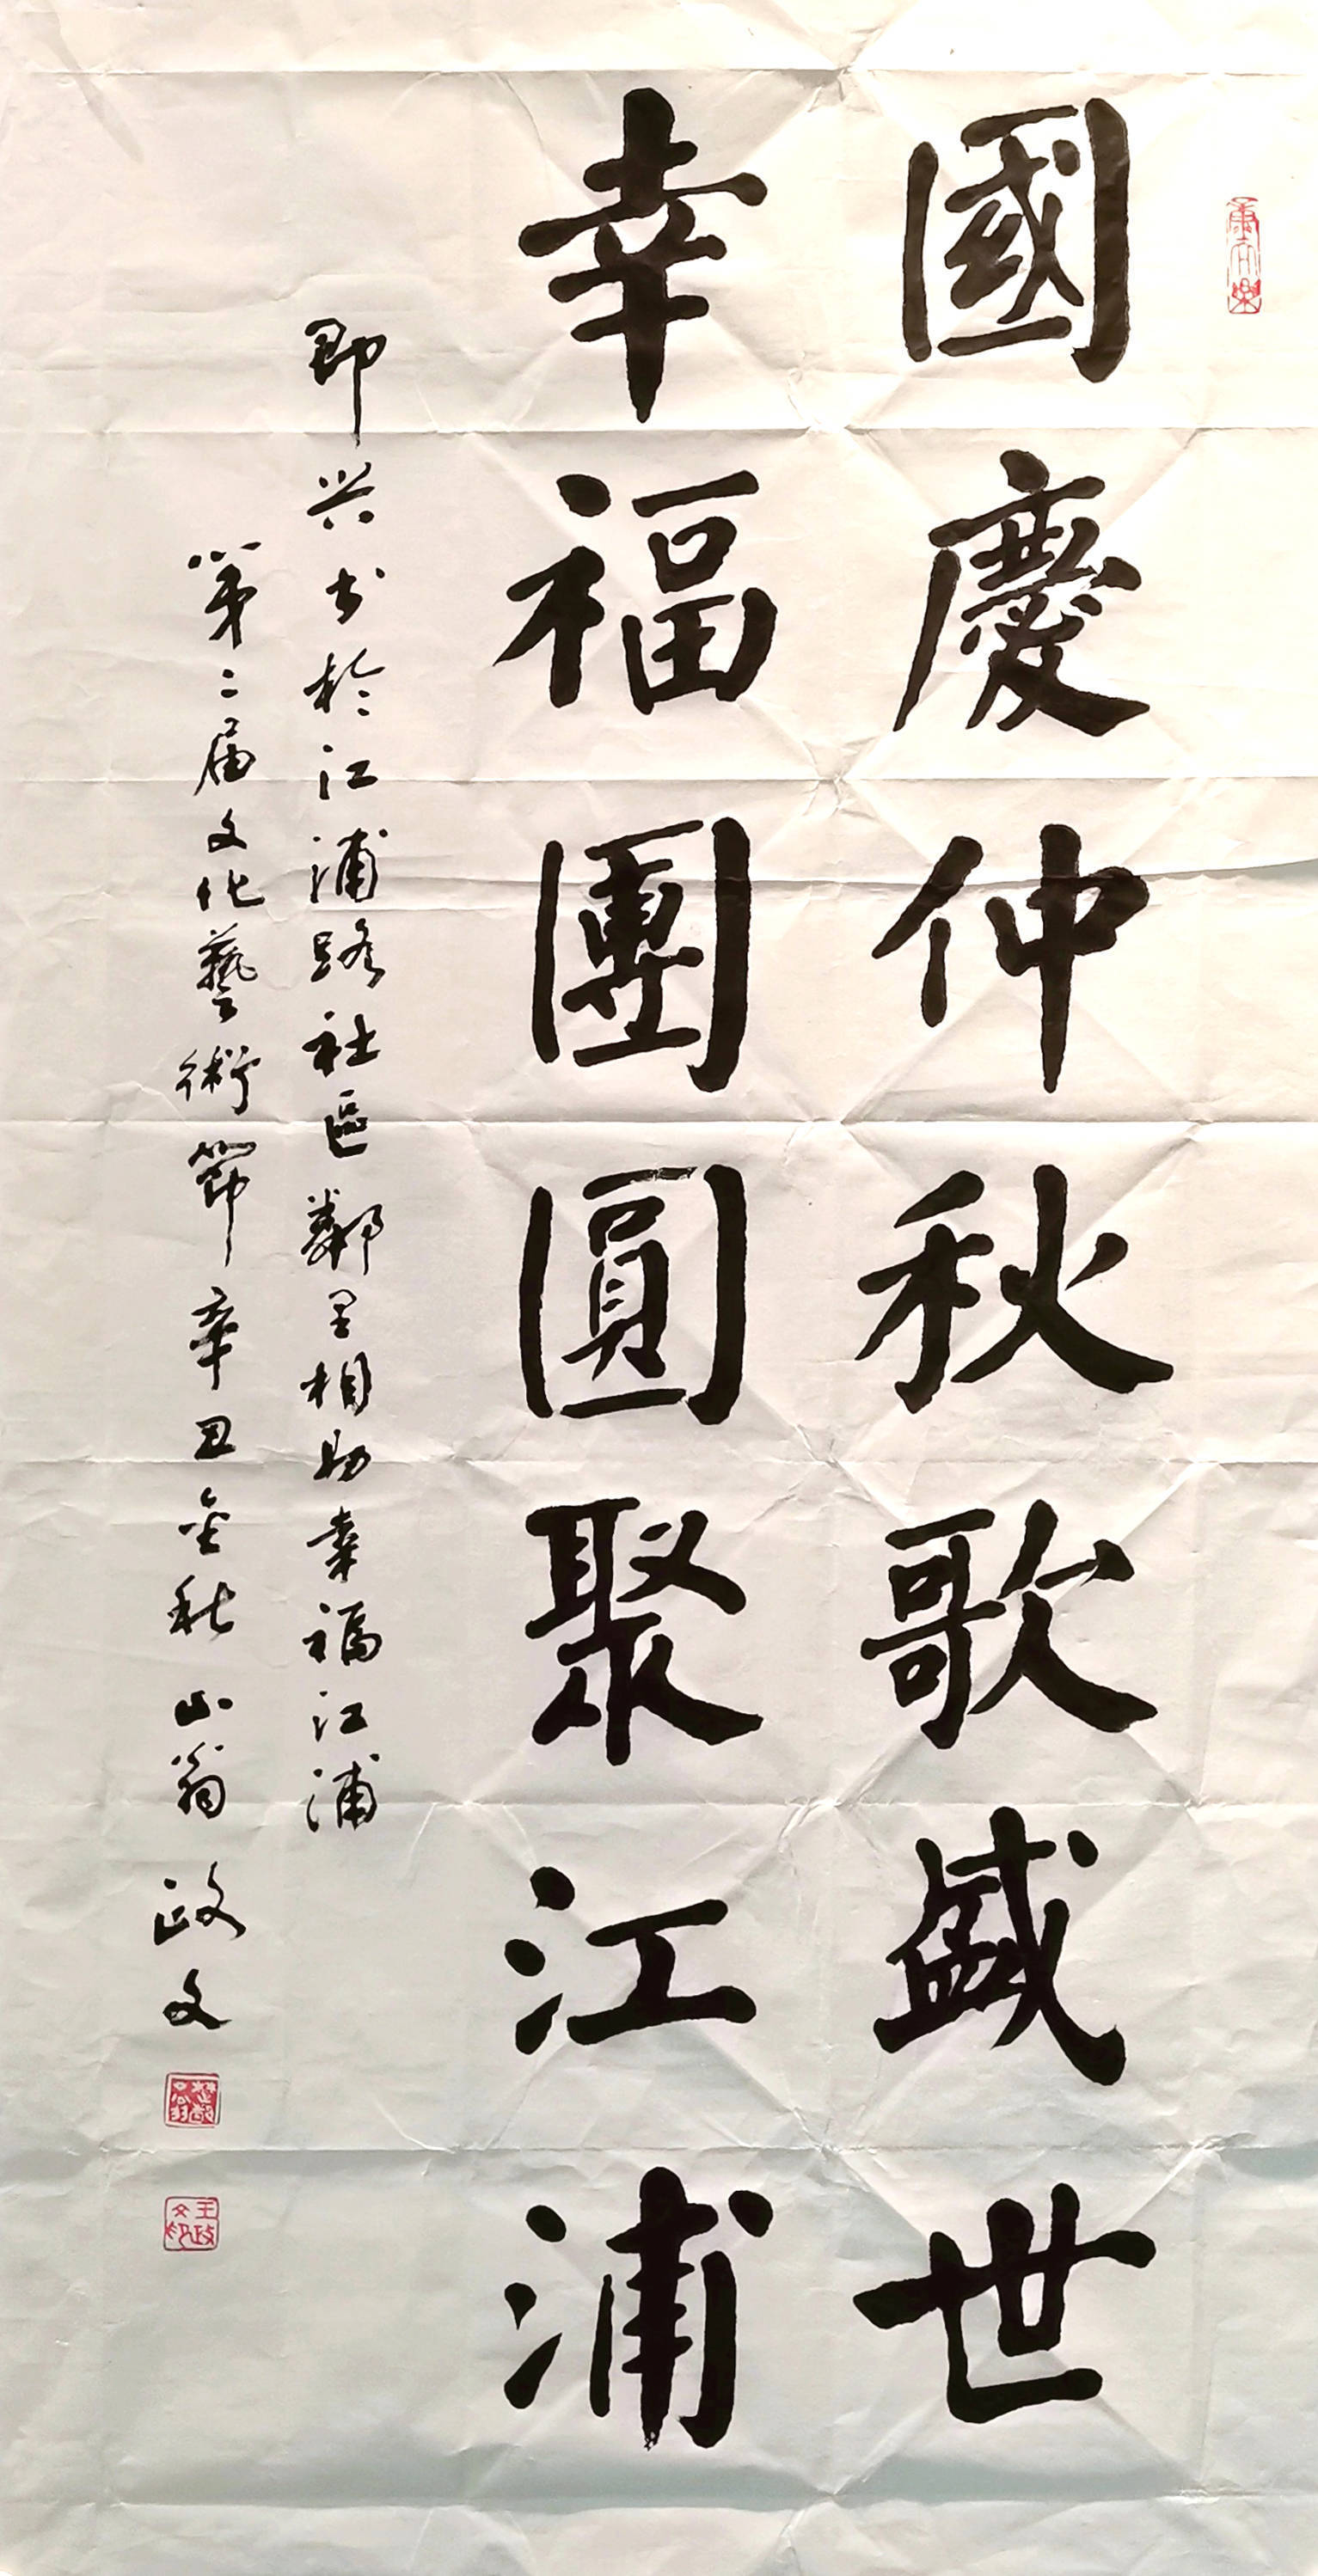 國慶仲秋歌盛世
幸福團圓聚江浦
即兴书於江浦路社區鄰里相助幸福江浦
第二届文化藝術節辛丑金秋山翁政文
王政文印